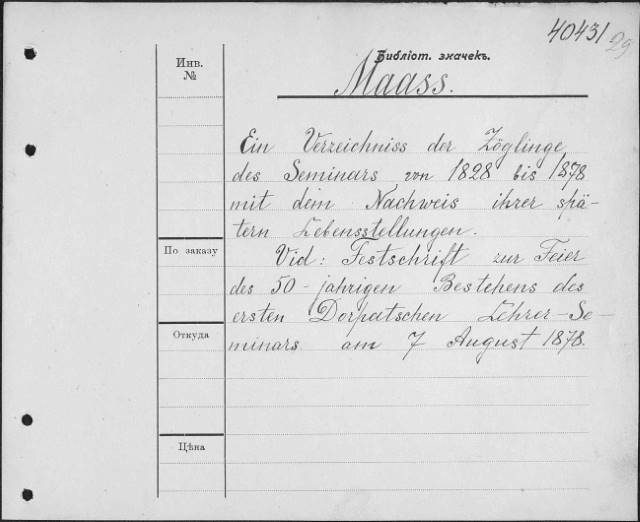 40431
29
Библіот. значекъ.
Инв.
№
Maass.
Ein Verzeichniss der Zöglinge
des Seminars von 1828 bis 1878
mit dem Nachweis ihrer spä-
tern Lebensstellungen.
По заказу
Vid: Festschrift zur Feier
des 50-jahrigen Bestehens des
ersten Dorpatschen Lehrer-Se-
Откуда
minars am 7 August 1878.
Цѣна